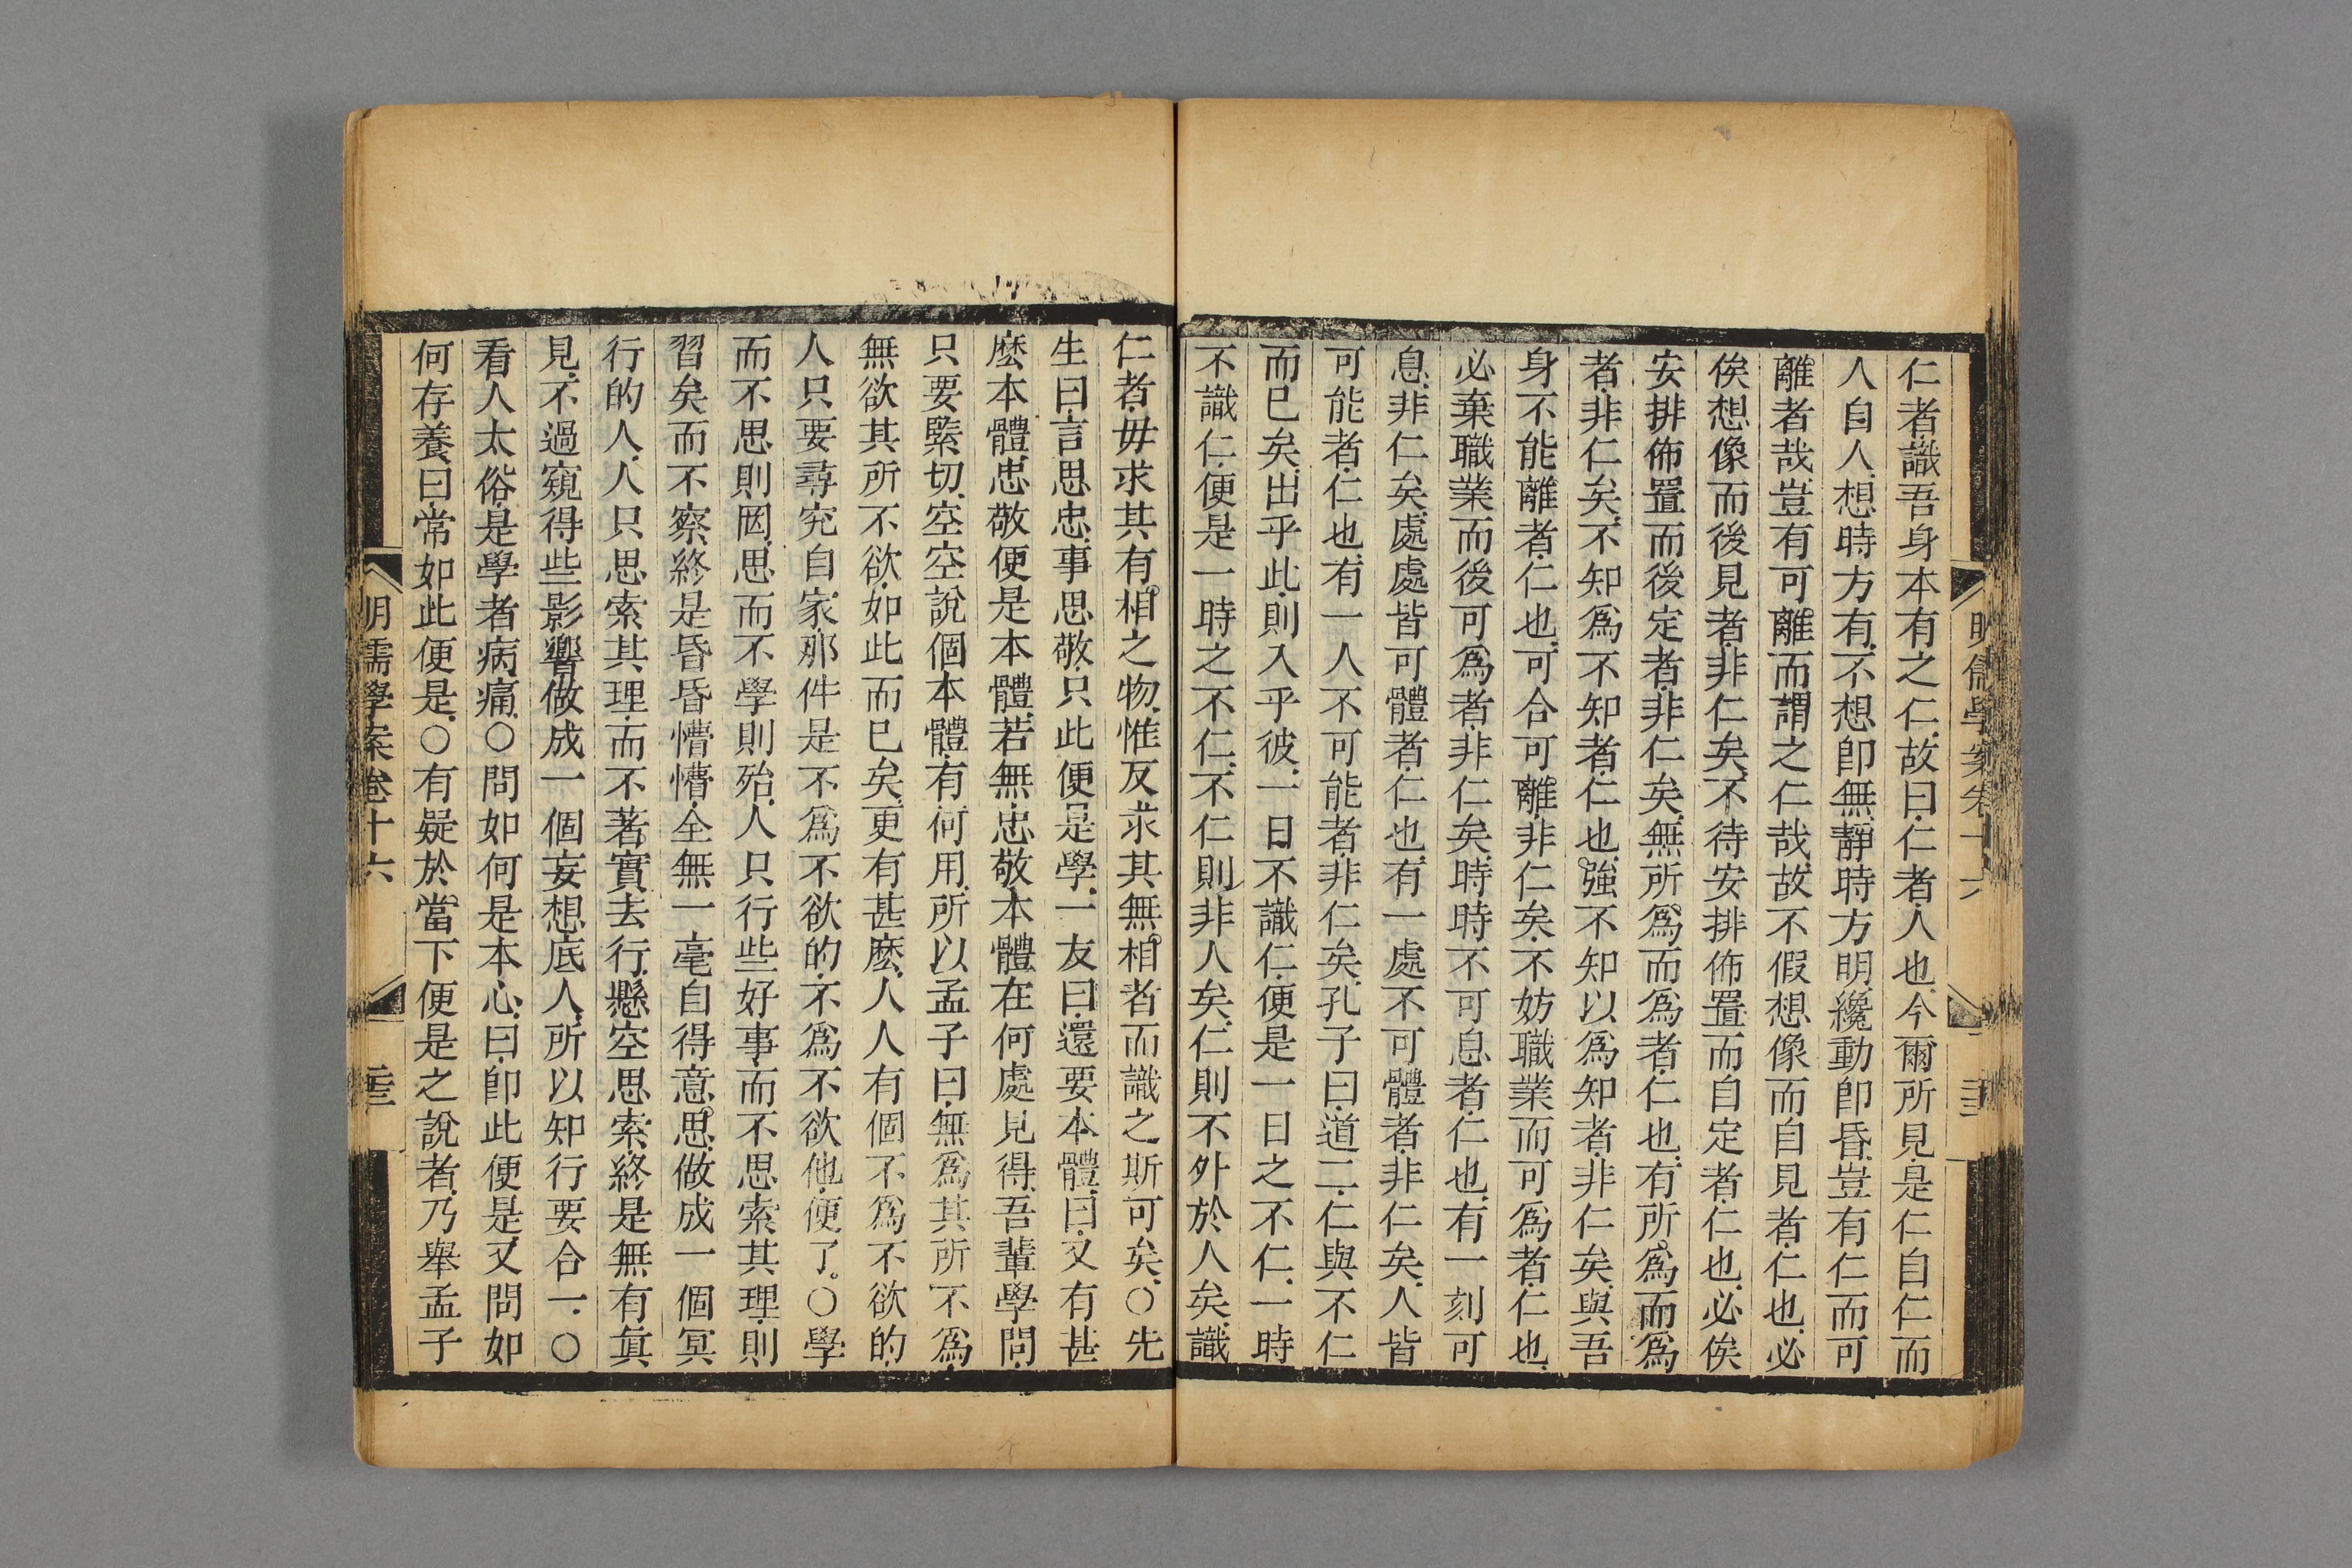 仁者、識吾身本有之仁、故曰、仁者、人也、今爾所見、是仁自仁而
人自人、想時方有、不想卽無、靜時方明、纔動卽昏、豈有仁而可
離者哉、豈有可離而謂之仁哉、故不假想像而自見者、仁也、必
俟想像而後見者、非仁矣、不待安排佈置而自定者、仁也、必俟
安排佈置而後定者、非仁矣、無所爲而爲者、仁也、有所爲而爲
者、非仁矣、不知爲不知者、仁也、強不知以爲知者、非仁矣、與吾
身不能離者、仁也、可合可離、非仁矣、不妨職業而可爲者、仁也、
必棄職業而後可爲者、非仁矣、時時不可息者、仁也、有一刻可
息、非仁矣、處處皆可體者、仁也、有一處不可體者、非仁矣、人皆
可能者、仁也、有一人不可能者、非仁矣、孔子曰、道二、仁與不仁
而已矣、出乎此、則入乎彼、一日不識仁、便是一日之不仁、一時
不識仁、便是一時之不仁、不仁則非人矣、仁則不外於人矣、識
仁者、毋求其有相之物、惟反求其無相者而識之斯可矣、○先
生曰、言思忠、事思敬、只此便是學、一友曰、還要本體、曰、又有甚
麽本體、忠敬便是本體、若無忠敬、本體在何處見得、吾輩學問、
只要緊切、空空說個本體、有何用、所以孟子曰、無爲其所不爲、
無欲其所不欲、如此而已矣、更有甚麽、人人有個不爲不欲的、
人只要尋究自家那件是不爲不欲的、不爲不欲他、便了。○學
而不思則罔、思而不學則殆、人只行些好事、而不思索其理、則
習矣而不察、終是昏昏懵懵、全無一毫自得意思、做成一個冥
行的人、人只思索其理、而不著實去行、懸空思索、終是無有眞
見、不過窺得些影響、做成一個妄想底人、所以知行要合一、○
看人太俗、是學者病痛、○問如何是本心、曰、卽此便是、又問如
何存養、曰、常如此便是、○有疑於當下便是之說者、乃舉孟子
明儒學案卷十六